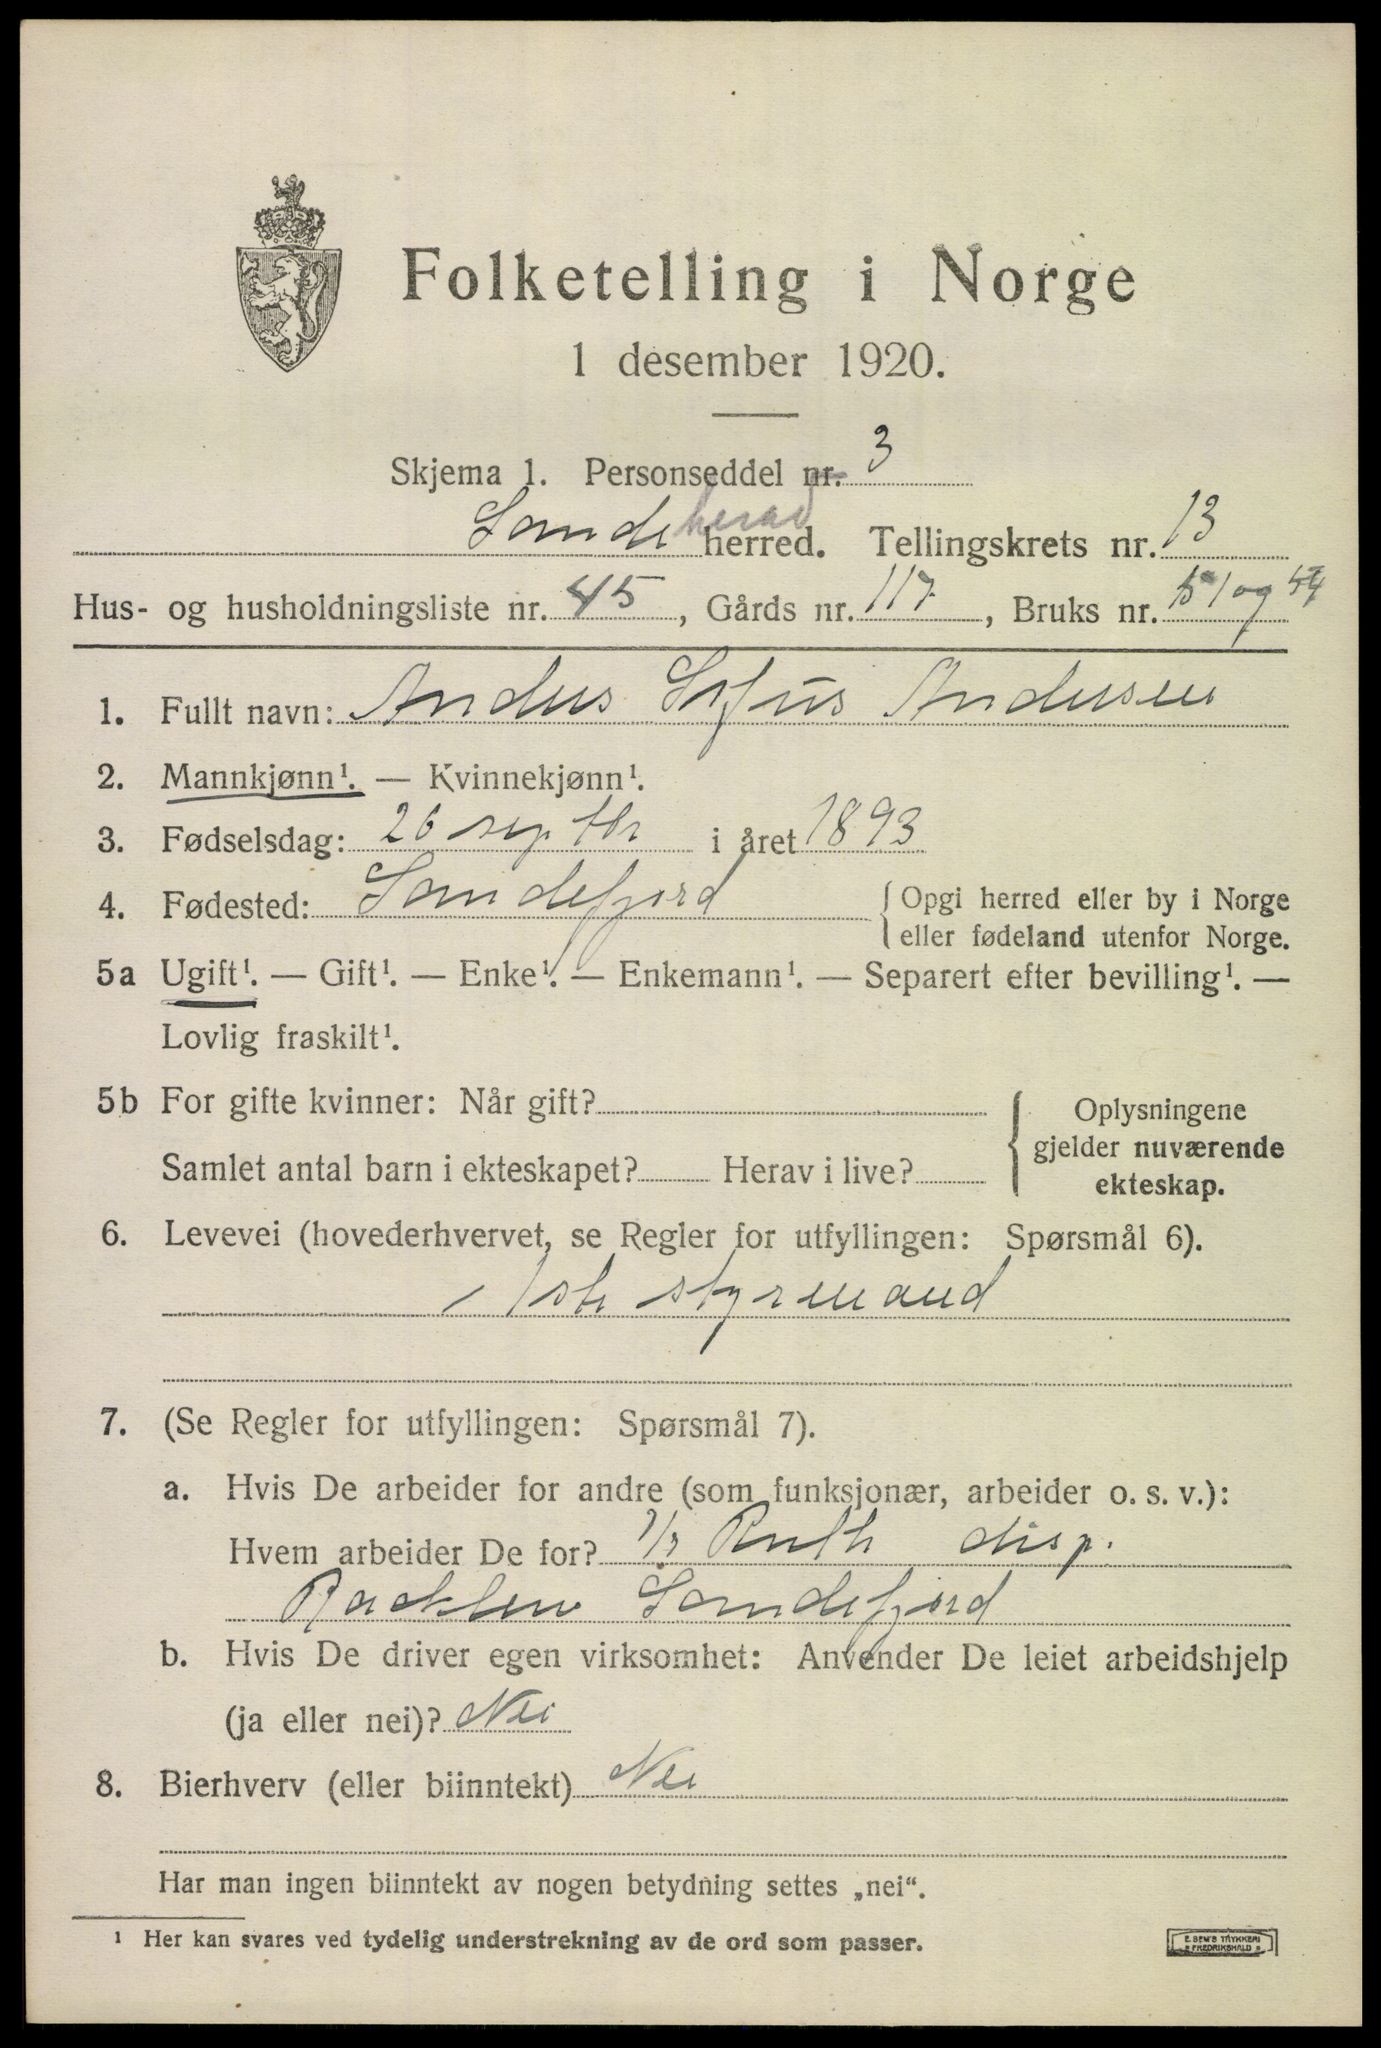 Folketelling i Norge
1 desember 1920.
Skjema 1. Personseddel nr. 3
Sandeherad herred. Tellingskrets nr. 13
Hus- og husholdningsliste nr. 45, Gårds nr. 117, Bruks nr. 51 og 54
1. Fullt navn: Anders Sofus Andersen
2. Mannkjønn¹. — Kvinnekjønn¹.
3. Fødselsdag: 26 septbr i året 1893
4. Fødested: Sandefjord { Opgi herred eller by i Norge
eller fødeland utenfor Norge.
5a Ugift¹. — Gift¹. — Enke¹. — Enkemann¹. — Separert efter bevilling¹. —
Lovlig fraskilt¹.
5b For gifte kvinner: Når gift?
Samlet antal barn i ekteskapet? Herav i live?
Oplysningene
gjelder nuværende
ekteskap.
6. Levevei (hovederhvervet, se Regler for utfyllingen: Spørsmål 6).
1ste styrmand
7. (Se Regler for utfyllingen: Spørsmål 7).
a. Hvis De arbeider for andre (som funksjonær, arbeider o. s. v.):
Hvem arbeider De for? Ruth disp.
Sandefjord
b. Hvis De driver egen virksomhet: Anvender De leiet arbeidshjelp
(ja eller nei)? Nei
8. Bierhverv (eller biinntekt) Nei
Har man ingen biinntekt av nogen betydning settes „nei“.
¹ Her kan svares ved tydelig understrekning av de ord som passer.
E. SEM'S TRYKKERI
FREDRIKSHALD